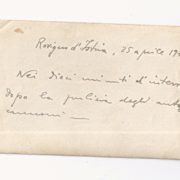 Rovigno d'Istria, 25 aprile 19
Nei dieci minuti d'interv
dopo la pulizia degli auto